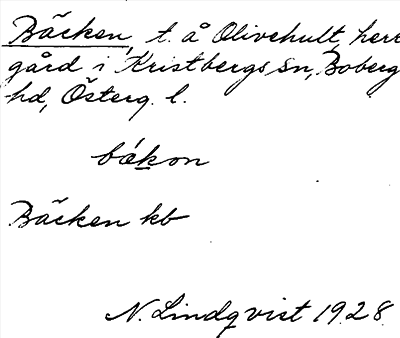 Bäcken, t. å Olivehult, herr
gård i Kristbergs sn, Boberg
hd, Österg. l.
bákon
Bäcken kb
N. Lindqvist 1928.